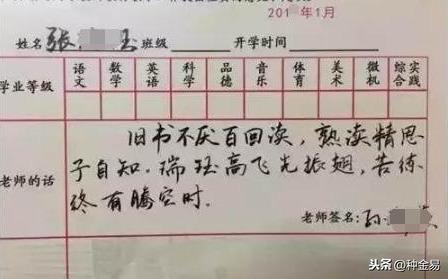 201 年1月
姓名 张 玉 班级 开学时间
学业等级 语文 数学 英语 科学 品德 音乐 体育 美术 微机 综合实践
旧书不厌百回读，熟读精思
子自知。瑞珏高飞先振翅，苦练
老师的话
终有腾空时。
老师签名：孙
头条 @种金易